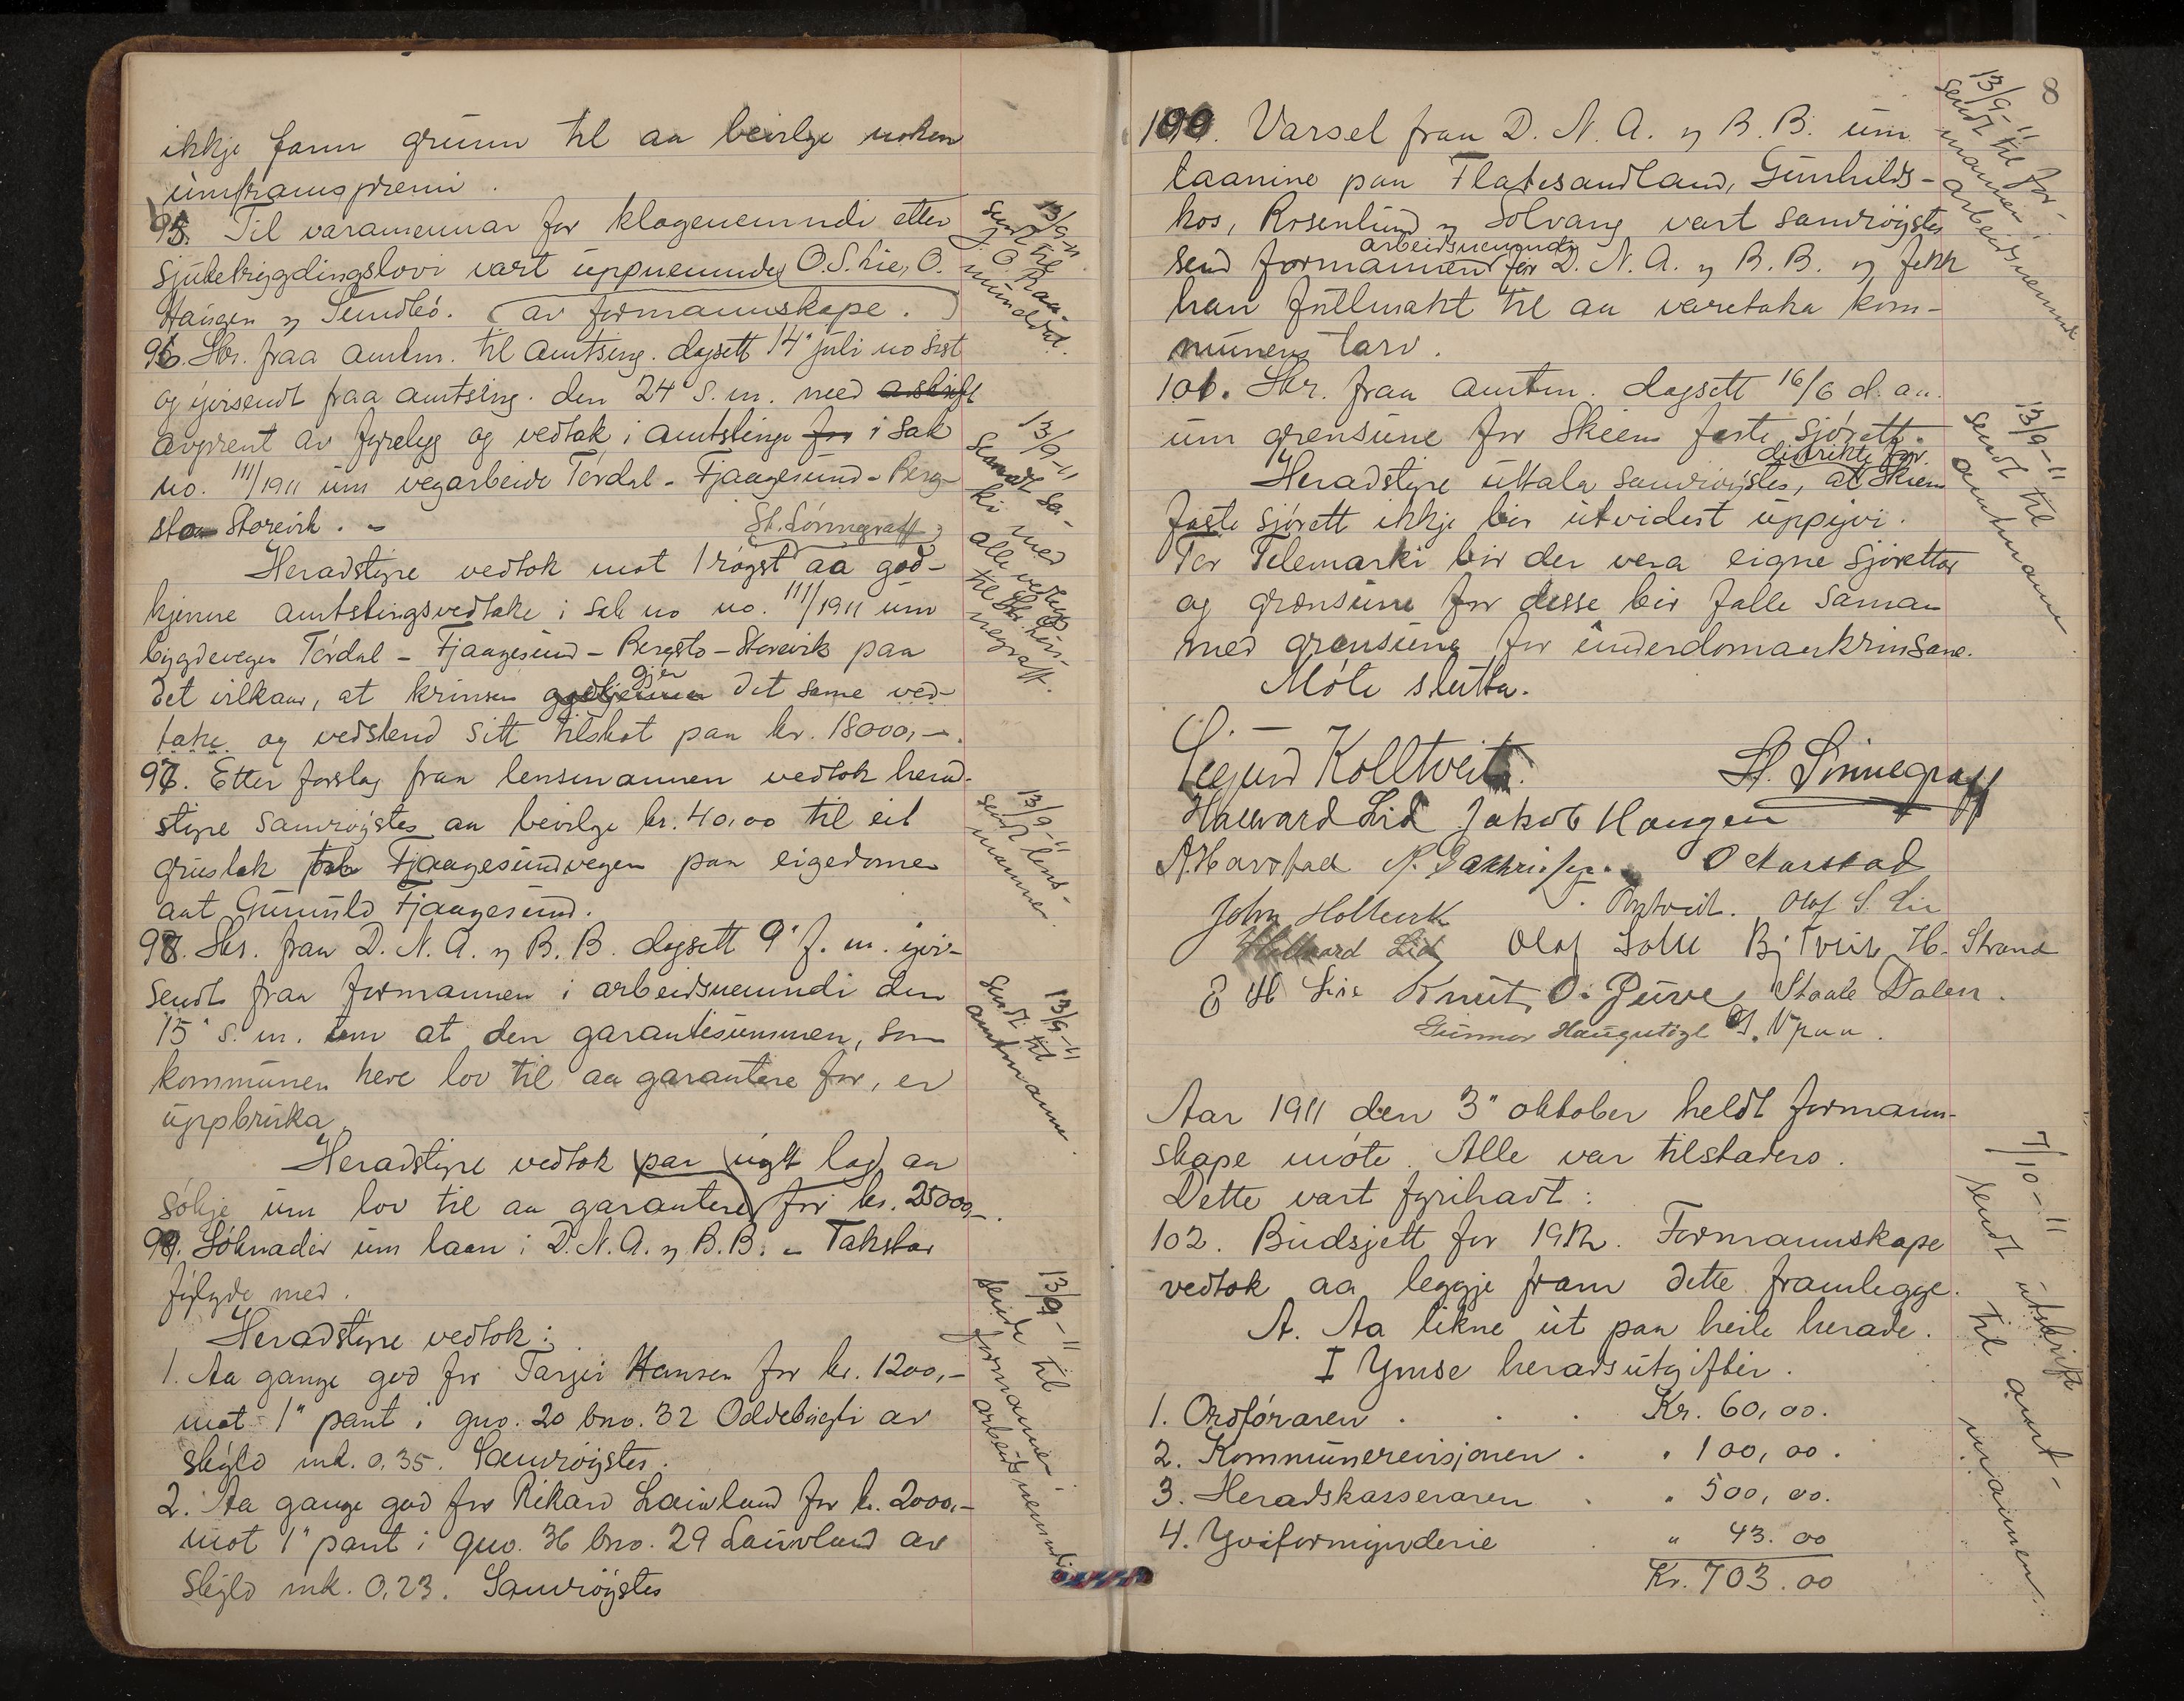 ikkje fann grunn til aa beivlge noken
umframspremi.
95. Til varamennar for klagenemndi etter
sjuketrygdingslovi vart uppnemnde O. S. Lie, O.
Haugen og Sundbö. (av formannskape.)
96. Skr. fraa amtm. til amtsing. dagsett 14" juli no sist
og yvirsendt fraa amtsing. den 24" s. m. med avskrift
avprent av fyrelegg og vedtak i amtstinge for i sak
no. 111/1911 um vegarbeide Tördal - Fjaagesund - Berg-
stø Storvik. -
St. Lönnegraff
Heradstyre vedtok mot 1 röyst aa god-
kjenne amtstingsvedtake i sak no no. 111/1911 um
bygdevegen Tördal - Fjaagesund - Bergstø - Storvik paa
det vilkaar, at krinsen godkjenner gjer det same ved-
take og vedstend sitt tilskot paa kr. 18000,-.
97. Etter forslag fraa lensmannen vedtok herad-
styre samröystes aa beivlge kr. 40,00 til eit
grustak Fjaagesundvegen paa eigedomen
aat Gunnuld Fjaagesund.
98. Skr. fraa D. N. A. og B. B. dagsett 9" f. m. yvir-
sendt fraa formannen i arbeidsnemndi den
15" s. m. um at den garantisummen, som
kommunen heve lov til aa garantere for, er
uppbruka.
Heradstyre vedtok paa nytt lag aa
sökje um lov til aa garantere for kr. 25000,-.
99. Söknader um laan i D. N. A. og B. B. - Takstar
fylgde med.
Heradstyre vedtok:
1. Aa gange god for Tarjei Hansen for kr. 1200,-
mot 1" pant i gno. 20 bno. 32 Oddebugti av
skyld mk. 0,35. Samröystes.
2. Aa gange god for Rikard Lauvland for kr. 2000,-
mot 1" pant i gno. 36 bno. 29 Lauvland av
skyld mk. 0,23. Samröystes
13/9-11.
Sendt til
J. O. Raa-
mundal.
13/9-11
Sendt sa-
ki med
alle vedlegg
til St. Lön-
negraff.
13/9-11
sendt lens-
mannen.
13/9-11
Sendt til
amtmannen.
13/9-11
sendt til
formannen i
arbeidsnemndi
8
100. Varsel fraa D. N. A. og B. B. um
laanine paa Flatesandland, Gunhilds-
hos, Rosenlund og Solvang vart samröystes
send formannen arbeidsnemndi for D. N. A. og B. B. og fekk
han fullmakt til aa varetaka kom-
munens tarv.
101. Skr. fraa amtm. dagsett 16/6 d. aa.
um grensune for Skiens faste sjörett.
Heradstyre uttala samröystes, at distrikte for Skiens
faste sjörett ikkje bör utvidest uppyvi.
For Telemarki bör der vera eigne sjörettar
og grensune for desse bör falle saman
med grensune for underdomarkrinsane.
Möte slutta.
Sigurd Kolltveit. St. Lönnegraff
Hallvard Lid Jakob Haugen
A. Harstad N. Zakrisen. O Harstad
John Holtvik Olaf S. Lie
Hallvard Lid Olaf Bj Tveit H. Strand
E H Lie Knut O. Purve Staale Dalen.
Gunnar Haugutøyl
Aar 1911 den 3" oktober heldt formann-
skape möte. Alle var tilstades.
Dette vart fyrihavt:
102. Budsjett for 1912. Formannskape
vedtok aa leggje fram dette framlegge.
A. Aa likne ut paa heile herade.
I Ymse heradsutgifter.
1. Ordföraren . . . Kr. 60,00.
2. Kommunerevisjonen . " 100,00.
3. Heradskasseraren . " 500,00.
4. Yviformynderie " 43.00
Kr. 703.00
13/9-11
sendt til for-
mannen i
arbeidsnemndi
13/9-11
sendt til
amtmann
7/10-11
sendt utskrift
til amt-
mannen.